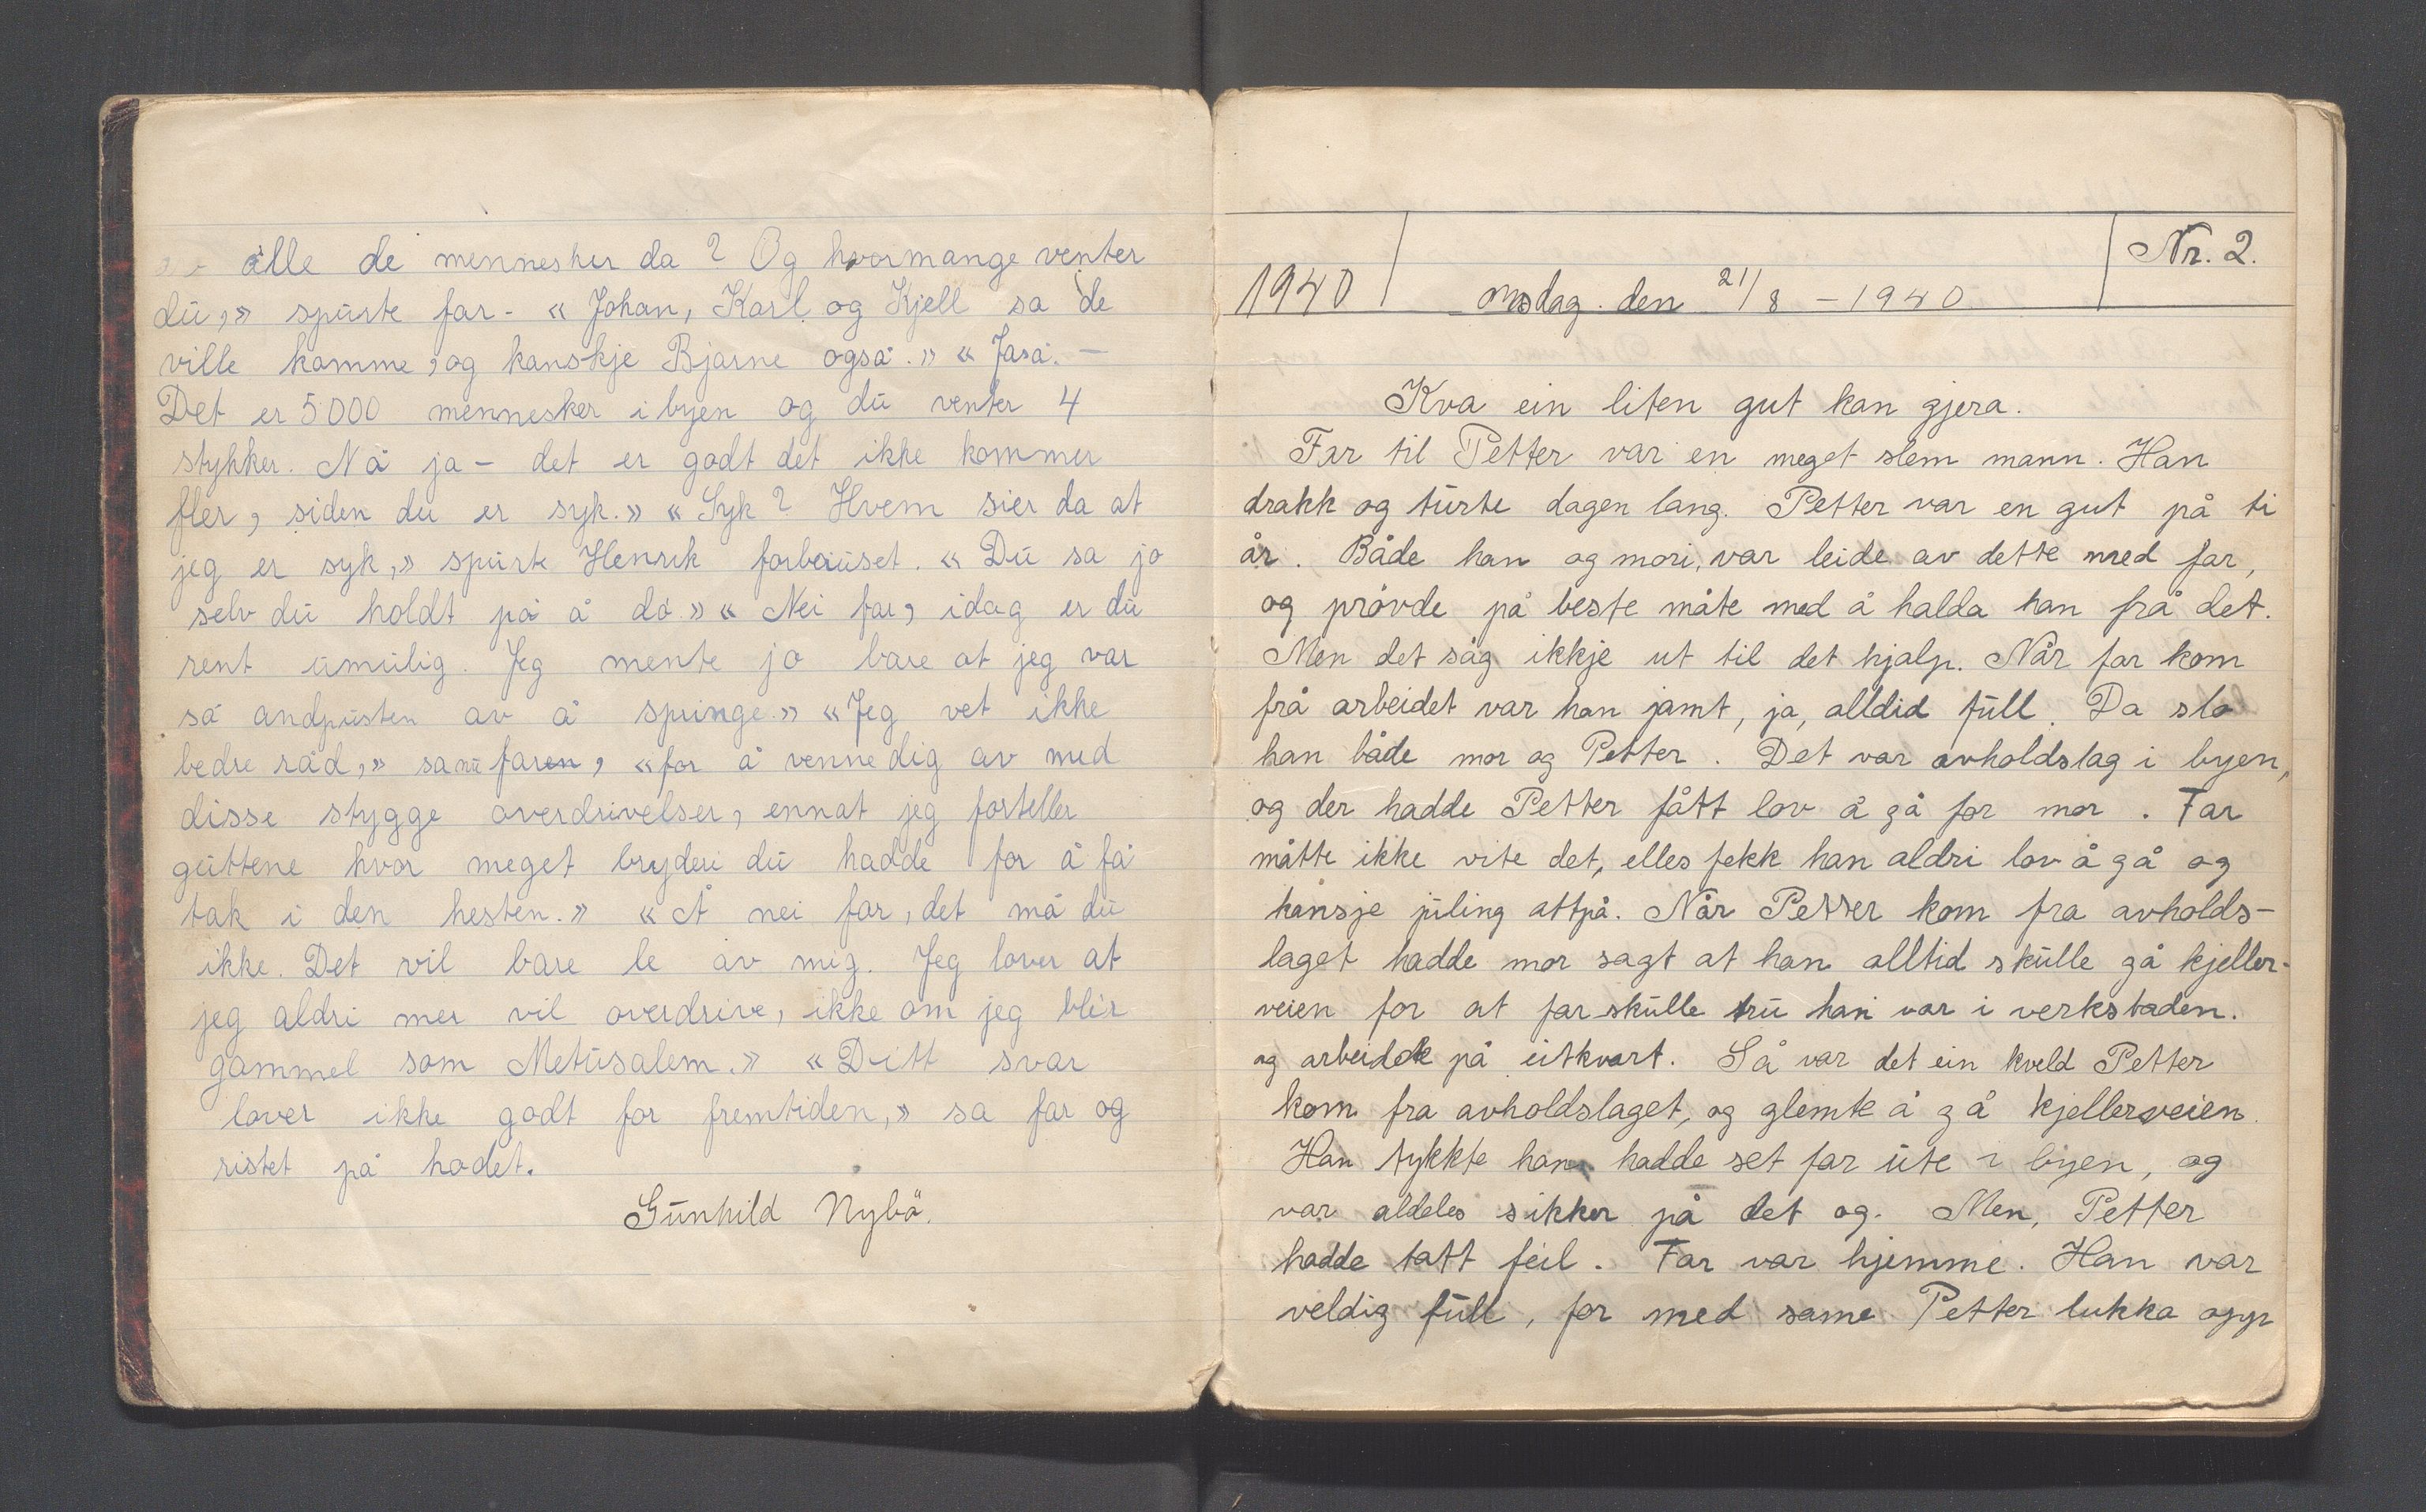 av alle de mennesker da? Og hvormange venter
du,» spurte far - « Johan, Karl og Kjell sa de
ville komme, og kanskje Bjarne også.» « Jaså. —
Det er 5000 mennesker i byen og du venter 4
stykker. Nå ja - det er godt det ikke kommer
fler, siden du er syk.» « Syk? Hvem sier da at
jeg er syk,» spurte Henrik forbauset. « Du sa jo
selv du holdt på å dö» « Nei far, idag er du
rent umulig. Jeg mente jo bare at jeg var
så andpusten av å springe.» « Jeg vet ikke
bedre råd,» sa nu faren, « for å venne dig av med
disse stygge overdrivelser, ennat jeg forteller
guttene hvor meget bryderi du hadde for å få
tak i den hesten.» « Å nei far, det må du
ikke. Det vil bare le av mig. Jeg lover at
jeg aldri mer vil overdrive, ikke om jeg blir
gammel som Metusalem.» « Ditt svar
lover ikke godt for fremtiden,» sa far og
ristet på hodet.
Gunhild Nybö.
Nr. 2.
1940 onsdag den 21/8 - 1940
Kva ein liten gut kan gjera.
Far til Petter var en meget slem mann. Han
drakk og turte dagen lang. Petter var en gut på ti
år. Både han og mori, var leide av dette med far,
og prövde på beste måte med å halda han frå det.
Men det såg ikkje ut til det hjalp. Når far kom
frå arbeidet var han jamt, ja, alldid full. Da slo
han både mor og Petter. Det var avholdslag i byen,
og der hadde Petter fått lov å gå for mor. Far
måtte ikke vite det, elles fekk han aldri lov å gå og
kansje juling attpå. Når Petter kom fra avholds-
laget hadde mor sagt at han alltid skulle gå kjeller-
veien for at far skulle tru han var i verkstaden.
og arbeidde på eitkvart. Så var det ein kveld Petter
kom fra avholdslaget, og glemte å gå kjellerveien.
Han tykkte han hadde set far ute i byen, og
var aldeles sikker på det og. Men, Petter
hadde tatt feil. Far var hjemme. Han var
veldig full, for med same Petter lukka opp